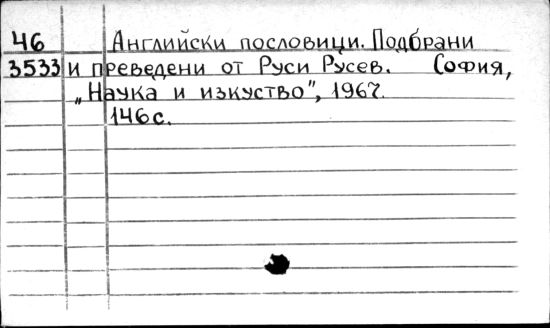 46 Английски пословици. Подбрани
3533 и преведени от Руси Русев. София,
„Наука и изкуство", 1967.
146 с.